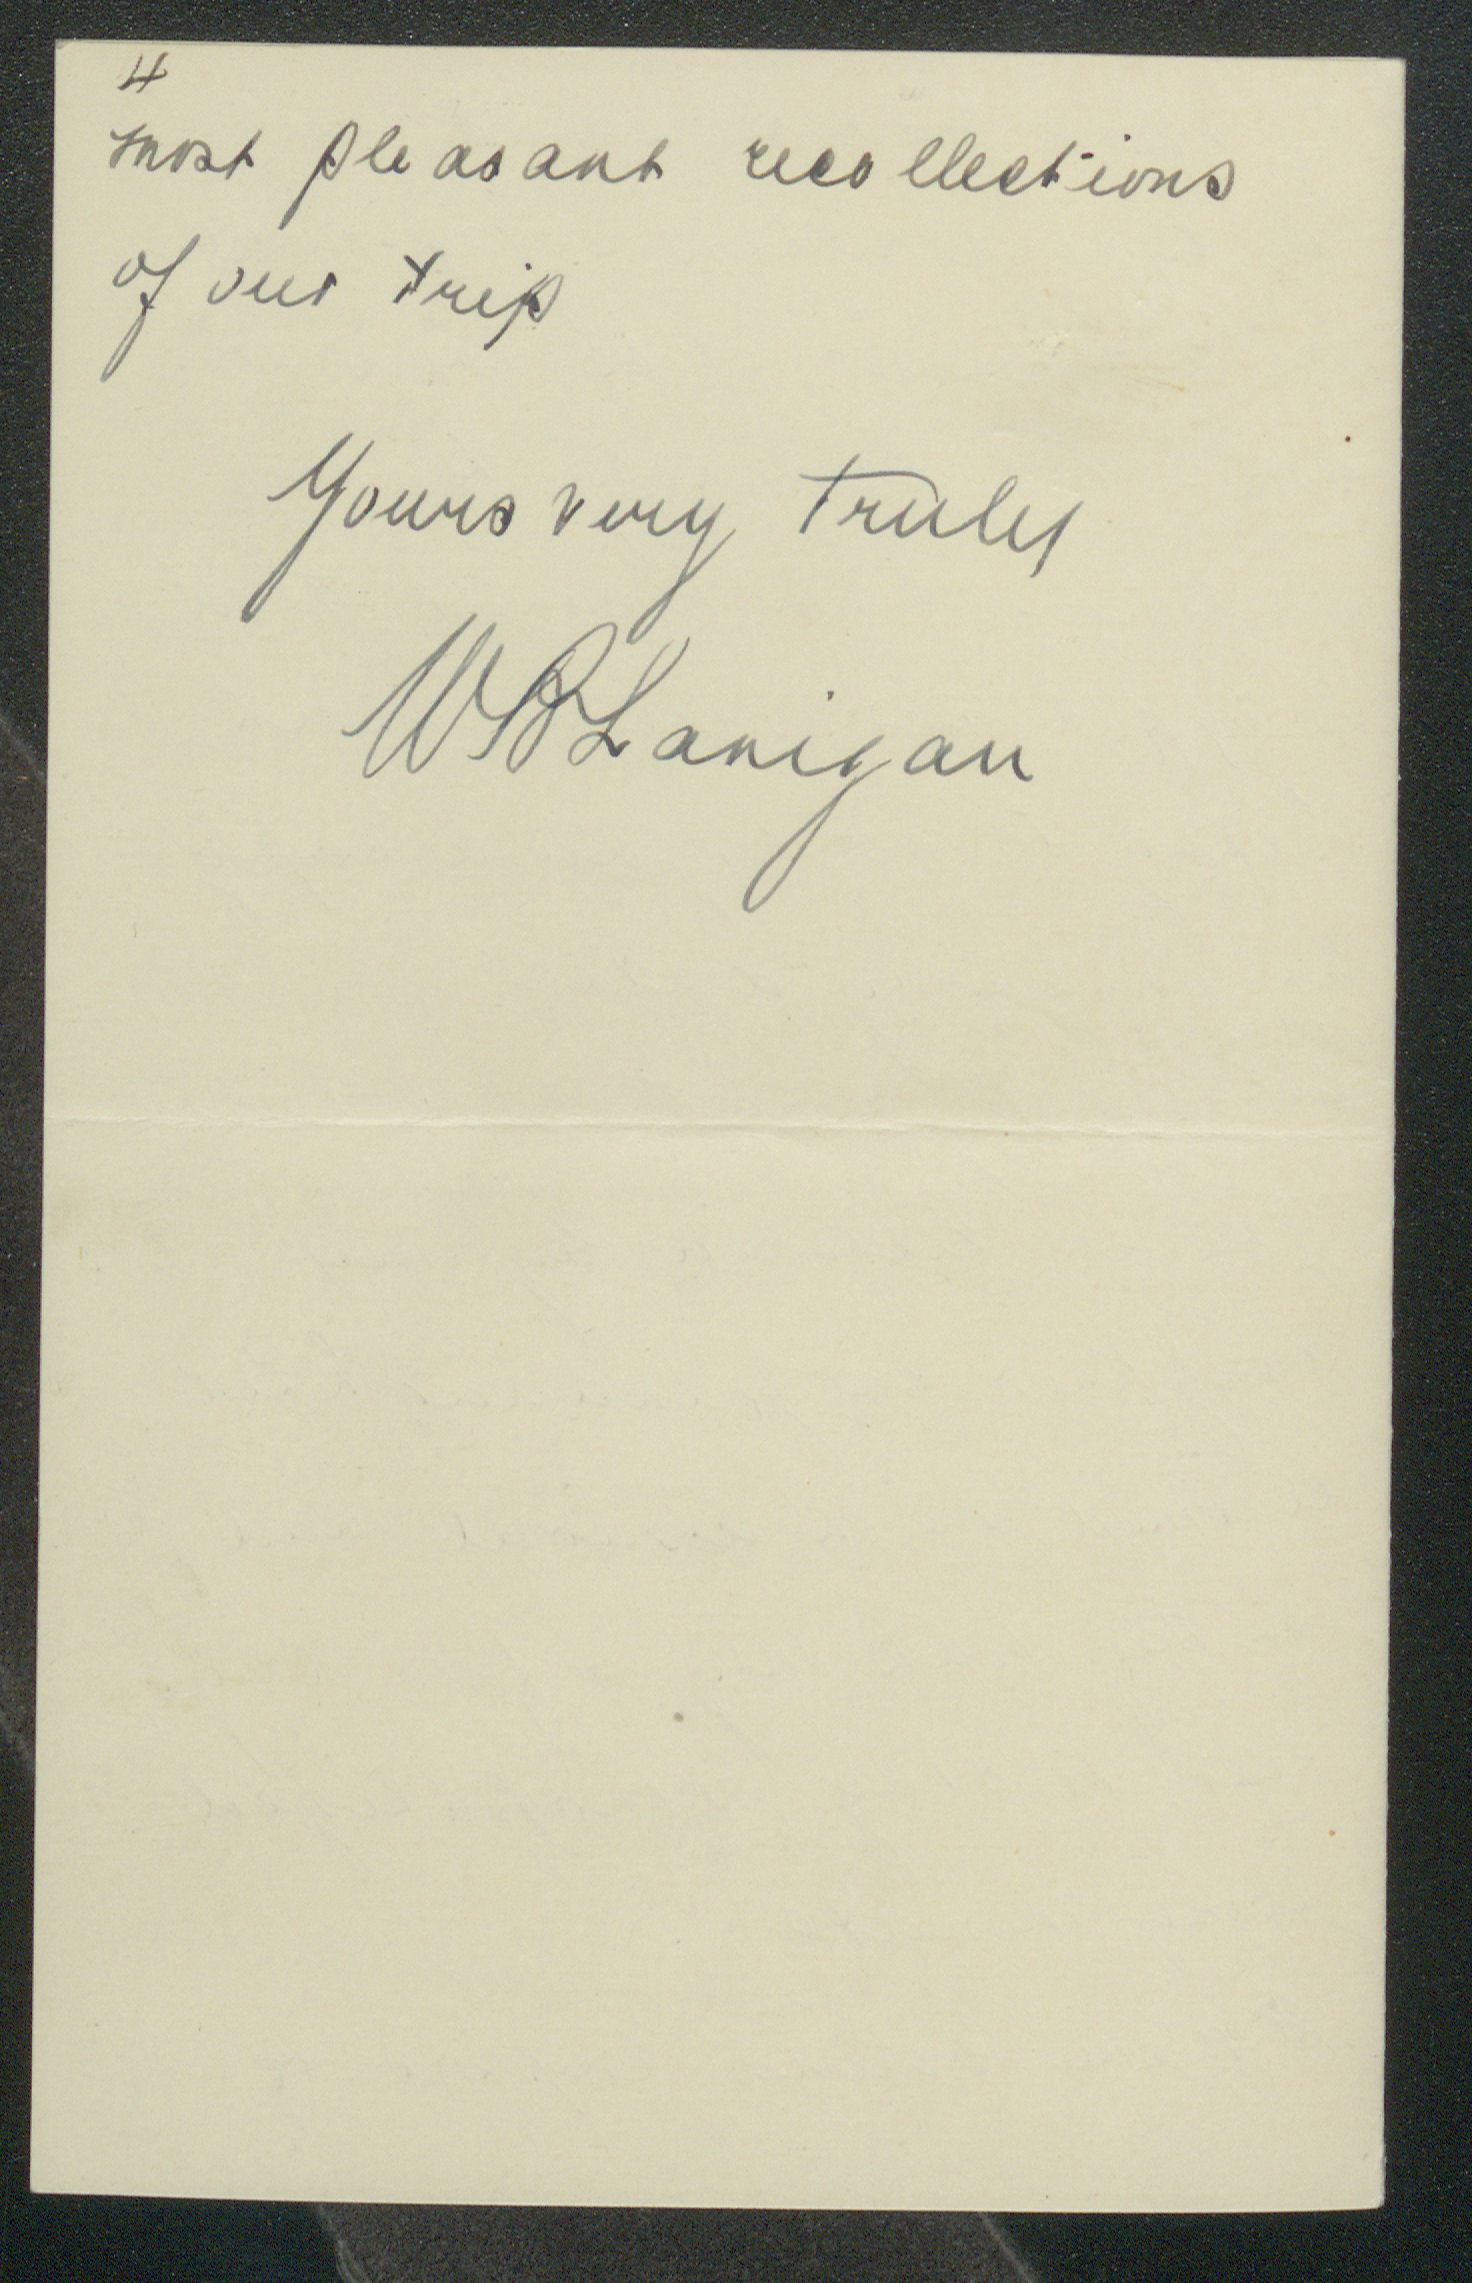 4
most pleasant recollections
of our trip
Yours very truly
WB Lanigan